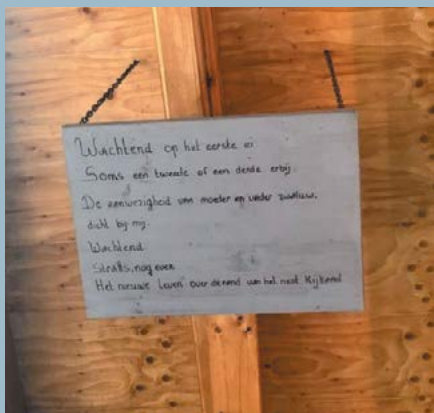 Wachtend op het eerste ei
Soms een tweede of een derde erbij.
De aanwezigheid van moeder en vader zwaluw,
dicht bij mij.
Wachtend.
Straks, nog even
Het nieuwe leven over de rand van het nest kijkend